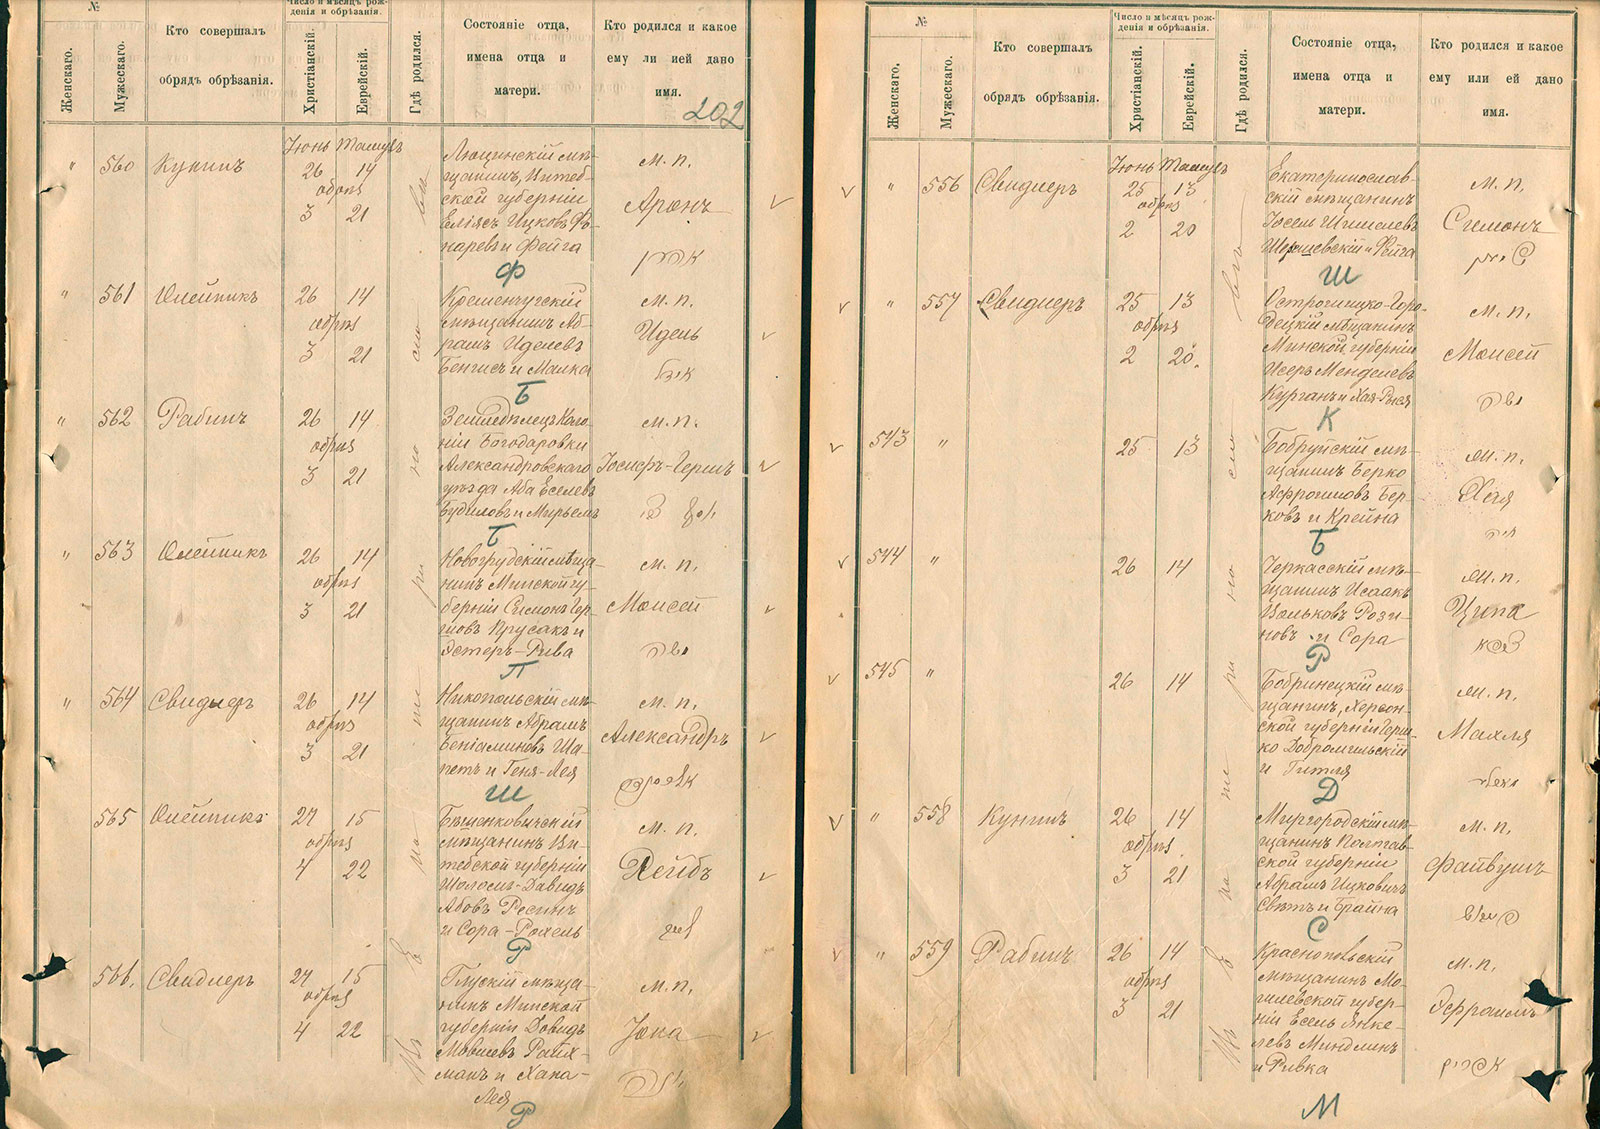 №
Женскаго.
Мужескаго.
Кто совершалъ
обрядъ обрѣзанія.
Число и мѣсяцъ рож-
денія и обрѣзанія.
Христіанскій.
Еврейскій.
Гдѣ родился.
Состояніе отца,
имена отца и
матери.
Кто родился и какое
ему ли ией дано
имя.
202
Іюнь Тамузъ
" 560 Кунинъ
26 14
обрѣз
3 21
Люцинскій мѣ-
щанинъ, Витеб-
ской губерніи
Еліясъ Ицковъ
и Фейга
Ф
м. п.
Аронъ
" 561 Олейникъ
26 14
обрѣз
3 21
Кременчугскій
мѣщанинъ Аб-
рамъ Иделевъ
Бенгисъ и Малка
Б
м. п.
Идель
" 562 Рабинъ
26 14
обрѣз
3 21
Земледѣлецъ Коло-
ніи Богодаровки
Александровскаго
уѣзда Аба Еселевъ
Будиловъ и Мирьемъ
Б
м. п.
Іосифъ-Гершъ
" 563 Олейникъ
26 14
обрѣз
3 21
Новогрудскій мѣща-
нинъ Минской гу-
берніи Симонъ Гер-
шовъ Прусакъ и
Эстеръ-Рива
П
м. п.
Моисей
משה
" 564 Свидлеръ
26 14
обрѣз
3 21
Никопольскій мѣ-
щанинъ Абрамъ
Беніаминовъ Ша-
петъ и Геня-Лея
Ш
м. п.
Александръ
565 Олейникъ
27 15
обрѣз
4 22
Бѣшенковичскій
мѣщанинъ Ви-
тебской губерніи
Шоломъ-Давидъ
Абовъ Ресинъ
и Сора-Рохель
Р
м. п.
Лейбъ
566. Свидлеръ
27 15
обрѣз
4 22
Глускій мѣща-
нинъ Минской
губерніи Довидъ
Мовшевъ Райх-
манъ и Хана-
Лея
Р
м. п.
Іона
№
Женскаго.
Мужескаго.
Кто совершалъ
обрядъ обрѣзанія.
Число и мѣсяцъ рож-
денія и обрѣзанія.
Христіанскій.
Еврейскій.
Гдѣ родился.
Состояніе отца,
имена отца и
матери.
Кто родился и какое
ему или ей дано
имя.
Іюнь Тамузъ
" 556 Свидлеръ
25 13
обрѣз
2 20
Екатеринослав-
скій мѣщанинъ
Іосель Шмилевъ
и Фейга
Ш
м. п.
Симонъ
" 557 Свидлеръ
25 13
обрѣз
2 20.
Острошицко-Горо-
децкій мѣщанинъ
Минской губерніи
Исеръ Менделевъ
Курганъ и Хая-Рыся
К
м. п.
Моисей
משה
543 "
25 13
Бобруйскій мѣ-
щанинъ Берко
Афроимовъ Бер-
ковъ и Крейна
Б
ж. п.
Хая
חיה
544 "
26 14
Черкасскій мѣ-
щанинъ Исаакъ
Вольковъ Рози-
новъ и Сора
Р
ж. п.
Ципа
545 "
26 14
Бобринецкій мѣ-
щанинъ, Херсон-
ской губерніи Герш-
ко Добромильскій
и Гитля
Д
ж. п.
Махля
" 558 Кунинъ
26 14
обрѣз
3 21
Миргородскій мѣ-
щанинъ Полтав-
ской губерніи
Абрамъ Ицковичъ
Свѣтъ и Брайна
С
м. п.
Файвушъ
" 559 Рабинъ
26 14
обрѣз
3 21
Краснопольскій
мѣщанинъ Мо-
гилевской губер-
ніи Есель Янке-
левъ Миндлинъ
и Ривка
М
м. п.
Эфроимъ
אפרים